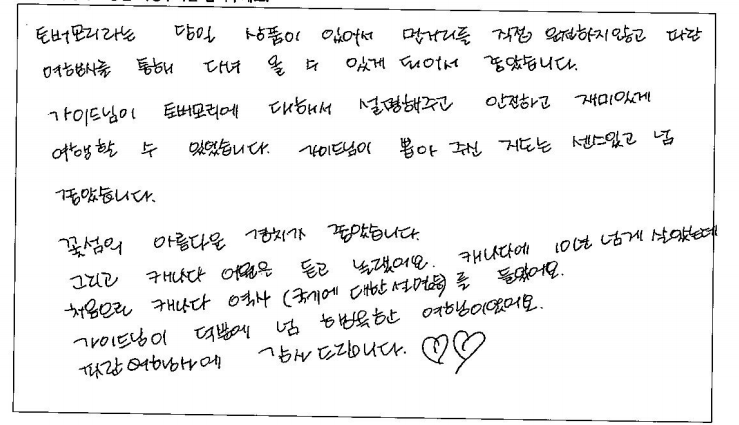 토버모리라는 당일 상품이 있어서 먼거리를 직접 운전하지않고 파란
여행사를 통해 다녀 올 수 있게 되어서 좋았습니다.
가이드님이 토버모리에 대해서 설명해주고 안전하고 재미있게
여행할 수 있었습니다. 가이드님이 뽑아 주신 지도는 센스있고 넘
좋았습니다.
꽃섬의 아름다운 경치가 좋았습니다.
그리고 캐나다 어원은 듣고 놀랬어요. 캐나다에 10년 넘게 살았는데
처음으로 캐나다 역사 (국기에 대한 설명등)를 들었어요.
가이드님이 덕분에 넘 행복한 여행이었어요.
파란여행사에 감사드립니다.